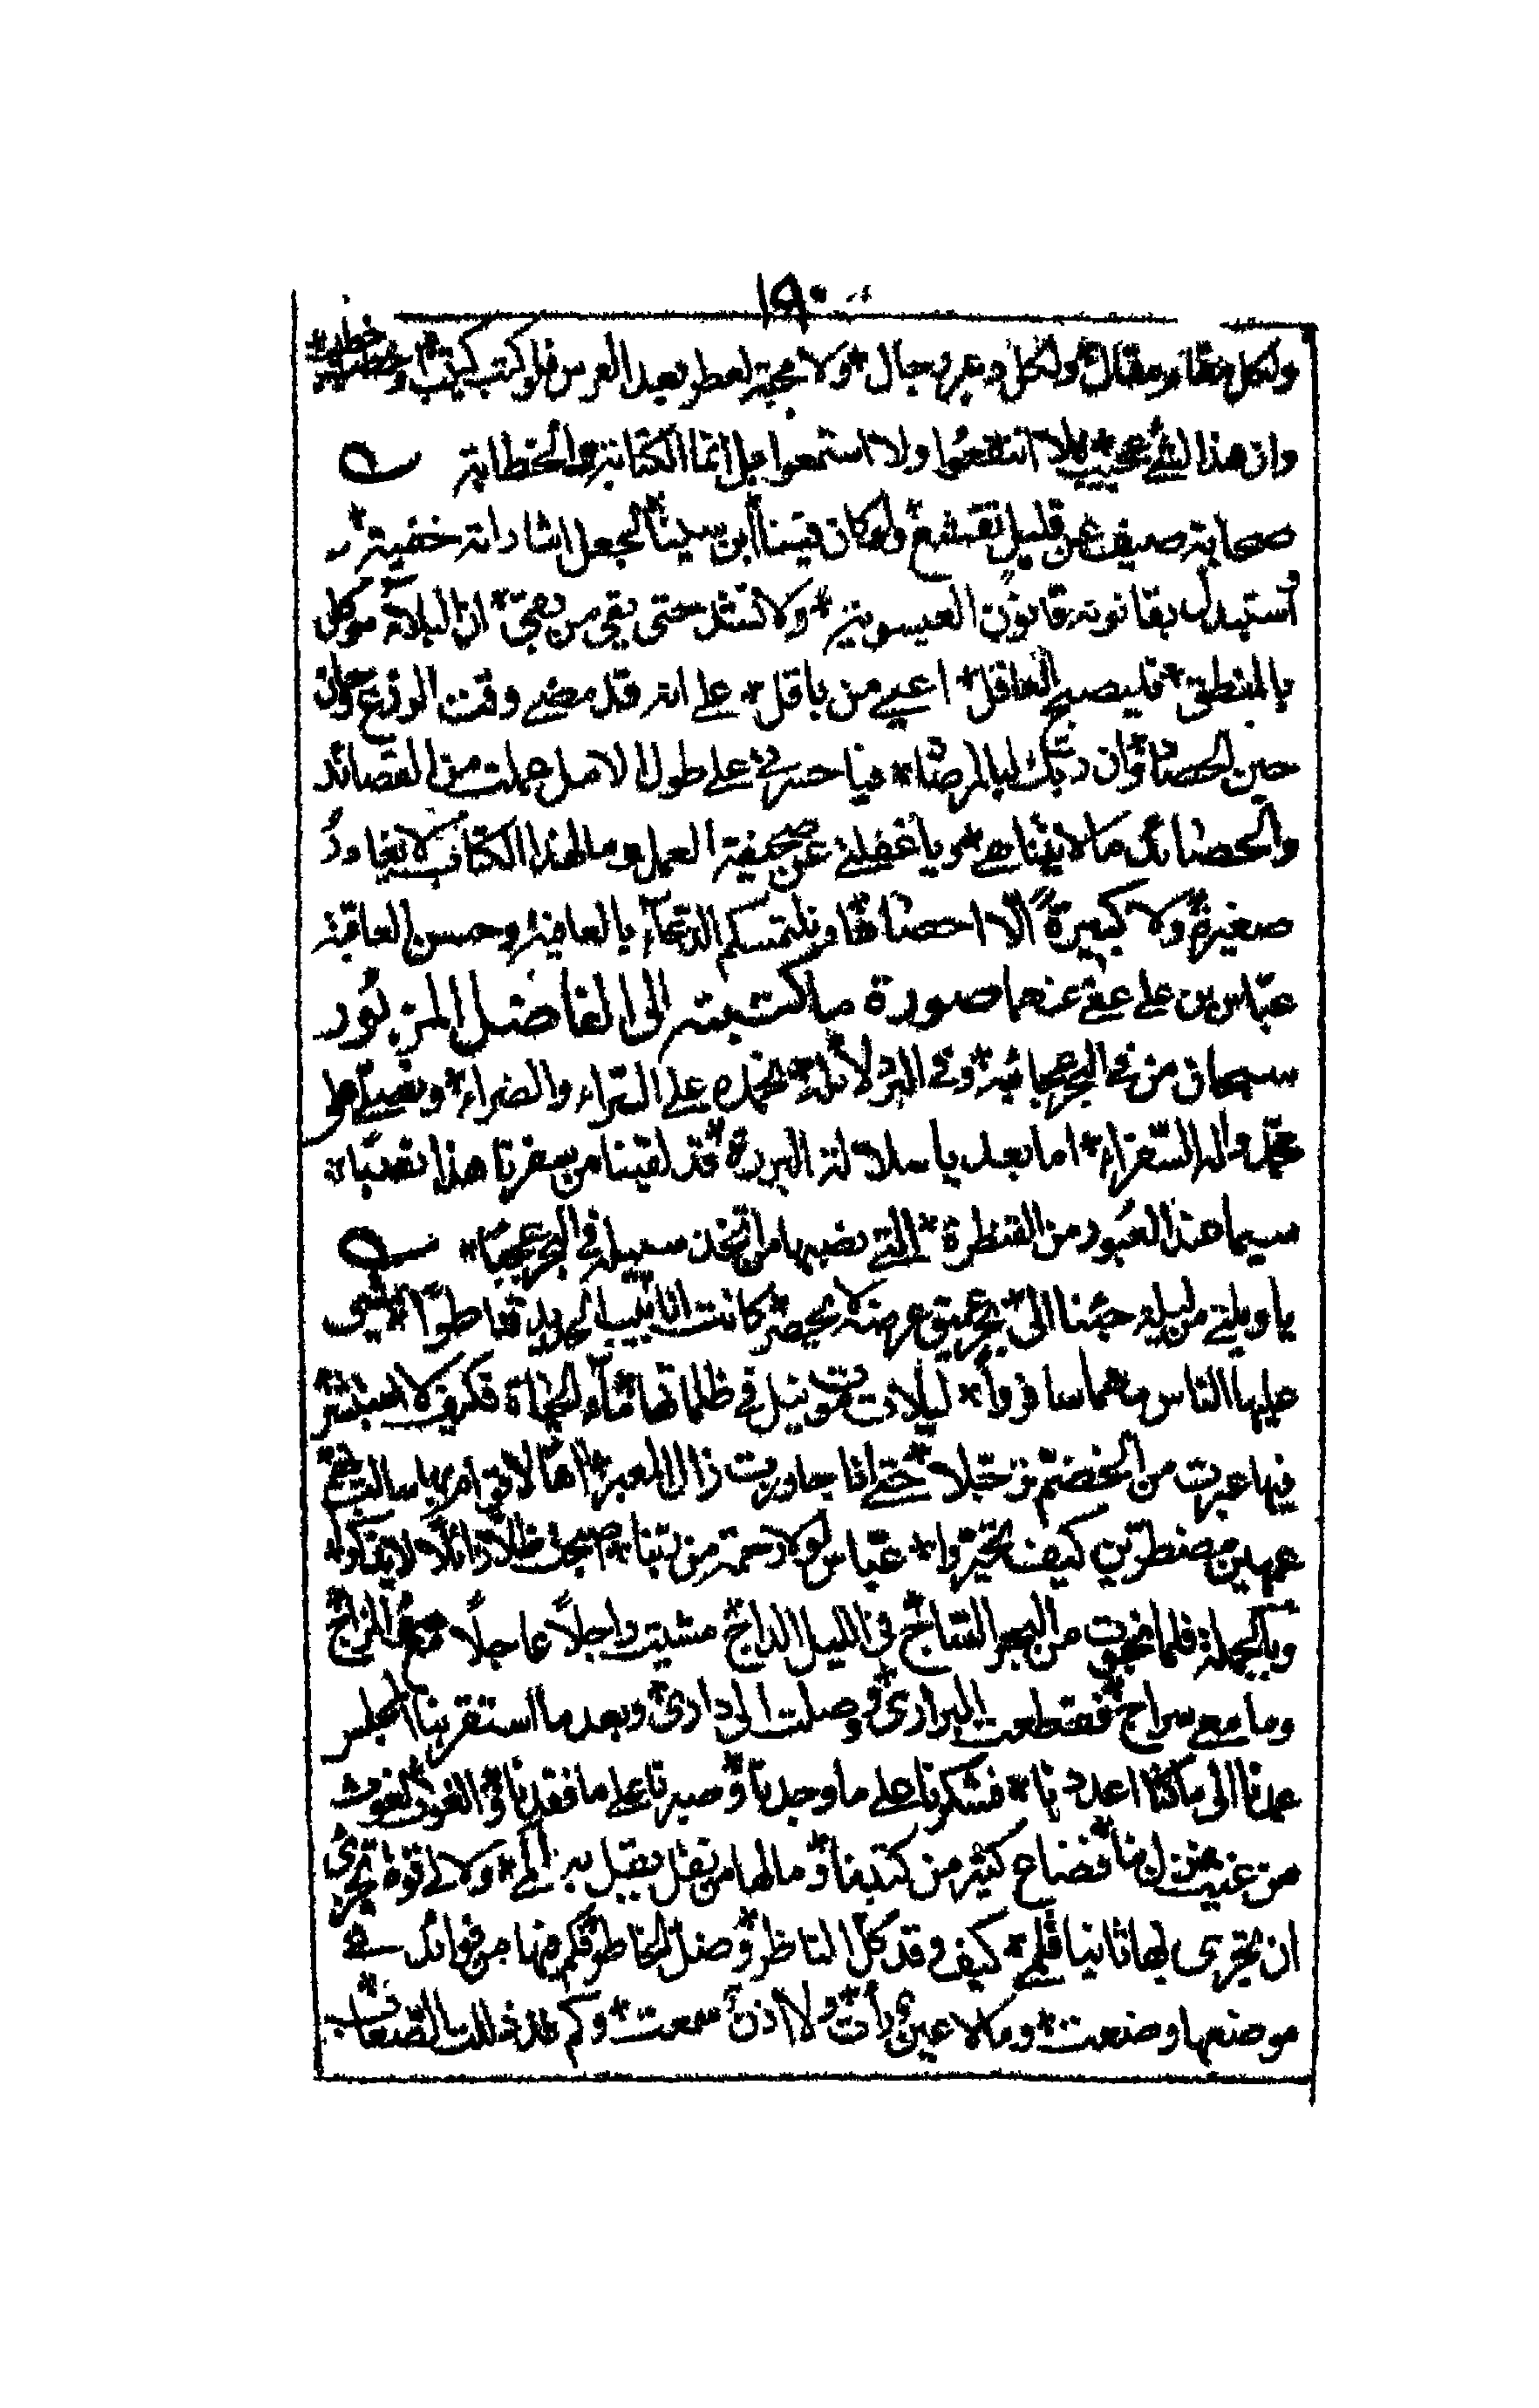 ١٩٠
ولكل مقام مقال * ولكل دهر رجال * ولا مخبة لعطر بعد العرس فلو كتب كتيب وخطب خطيب *
وان هذا لشئ عجيب * لا انتفعوا ولا استمعوا بل انما الكتابة والخطابة
سحابة صيف عن قليل تقشع * ولو كان فيتنا ابن سينا * لجعل اشاراته خفية *
استبدل بقانونه قانون العيسوية * ولا تسئل حتى بقي من بقي * ان البلاء موكل
بالمنطق * فليصبح العاقل * اعيى من باقل * على انه قد مضى وقت الزرع * وحان
حين الحصاد * وان ربك لبالمرصاد * فيا حسرتى على طول الامل جملت من القصائد
والحصائد ما لا يتناهى * ويا غفلتى عن صحيفة العمل وما لهذا الكتاب لا يغادر
صغيرة ولا كبيرة الا احصاها ونلتمسكم الدعاء بالعافية وحسن العاقبة
عباس بن على عفى عنهما صورة ما كتبته الى الفاضل المزبور
سبحان من فى البحر عجائبه * وفى البر دلائله * نحمده على السراء والضراء * ونصلى على
محمد واله السفراء * اما بعد يا سلالة البررة * قد لقينا من سفرنا هذا نصبا *
سيما هذا العبور من القنطرة * التى نصبها من اتخذ سبيله فى البحر عجبا *
يا ويلتى من ليلة جئنا الى بحر عميق عرضه لا يحصر * كانت انابيب الحديد قناطرا * تمشى
عليها الناس مهما سافروا * ليلا فى ظلماتها ماء الحياة فكيف لا استبشر *
فيها عبرت من الخضم توجلا * حتى اذا جاوزت ذاك المعبر *
كيف تخيروا * عباس لولا رحمة من ربنا *
وبالجملة فلما نجوت من البحر الثجاج * فى الليل الداج * مشيت راجلا عاجلا
وما معى سراج * فقطعت البرارى * وصلت الى دارى * وبعد ما استقر بنا المجلس
عدنا الى ما كنا اعددنا * فشكرنا على ما وجدنا * وصبرنا على ما فقدنا * والغوث الغوث
من فضاح كثير من كتبنا * وما لها من نقل يقبل به المى * ولا لى قوة تجزى
ان يجرى بها ثانيا قلمى * كيف وقد كل الناظر * وضل الخاطر * فكم فيها من فوائد
موضعها وضعت * وما لا عين رأت * ولا اذن سمعت * وكم